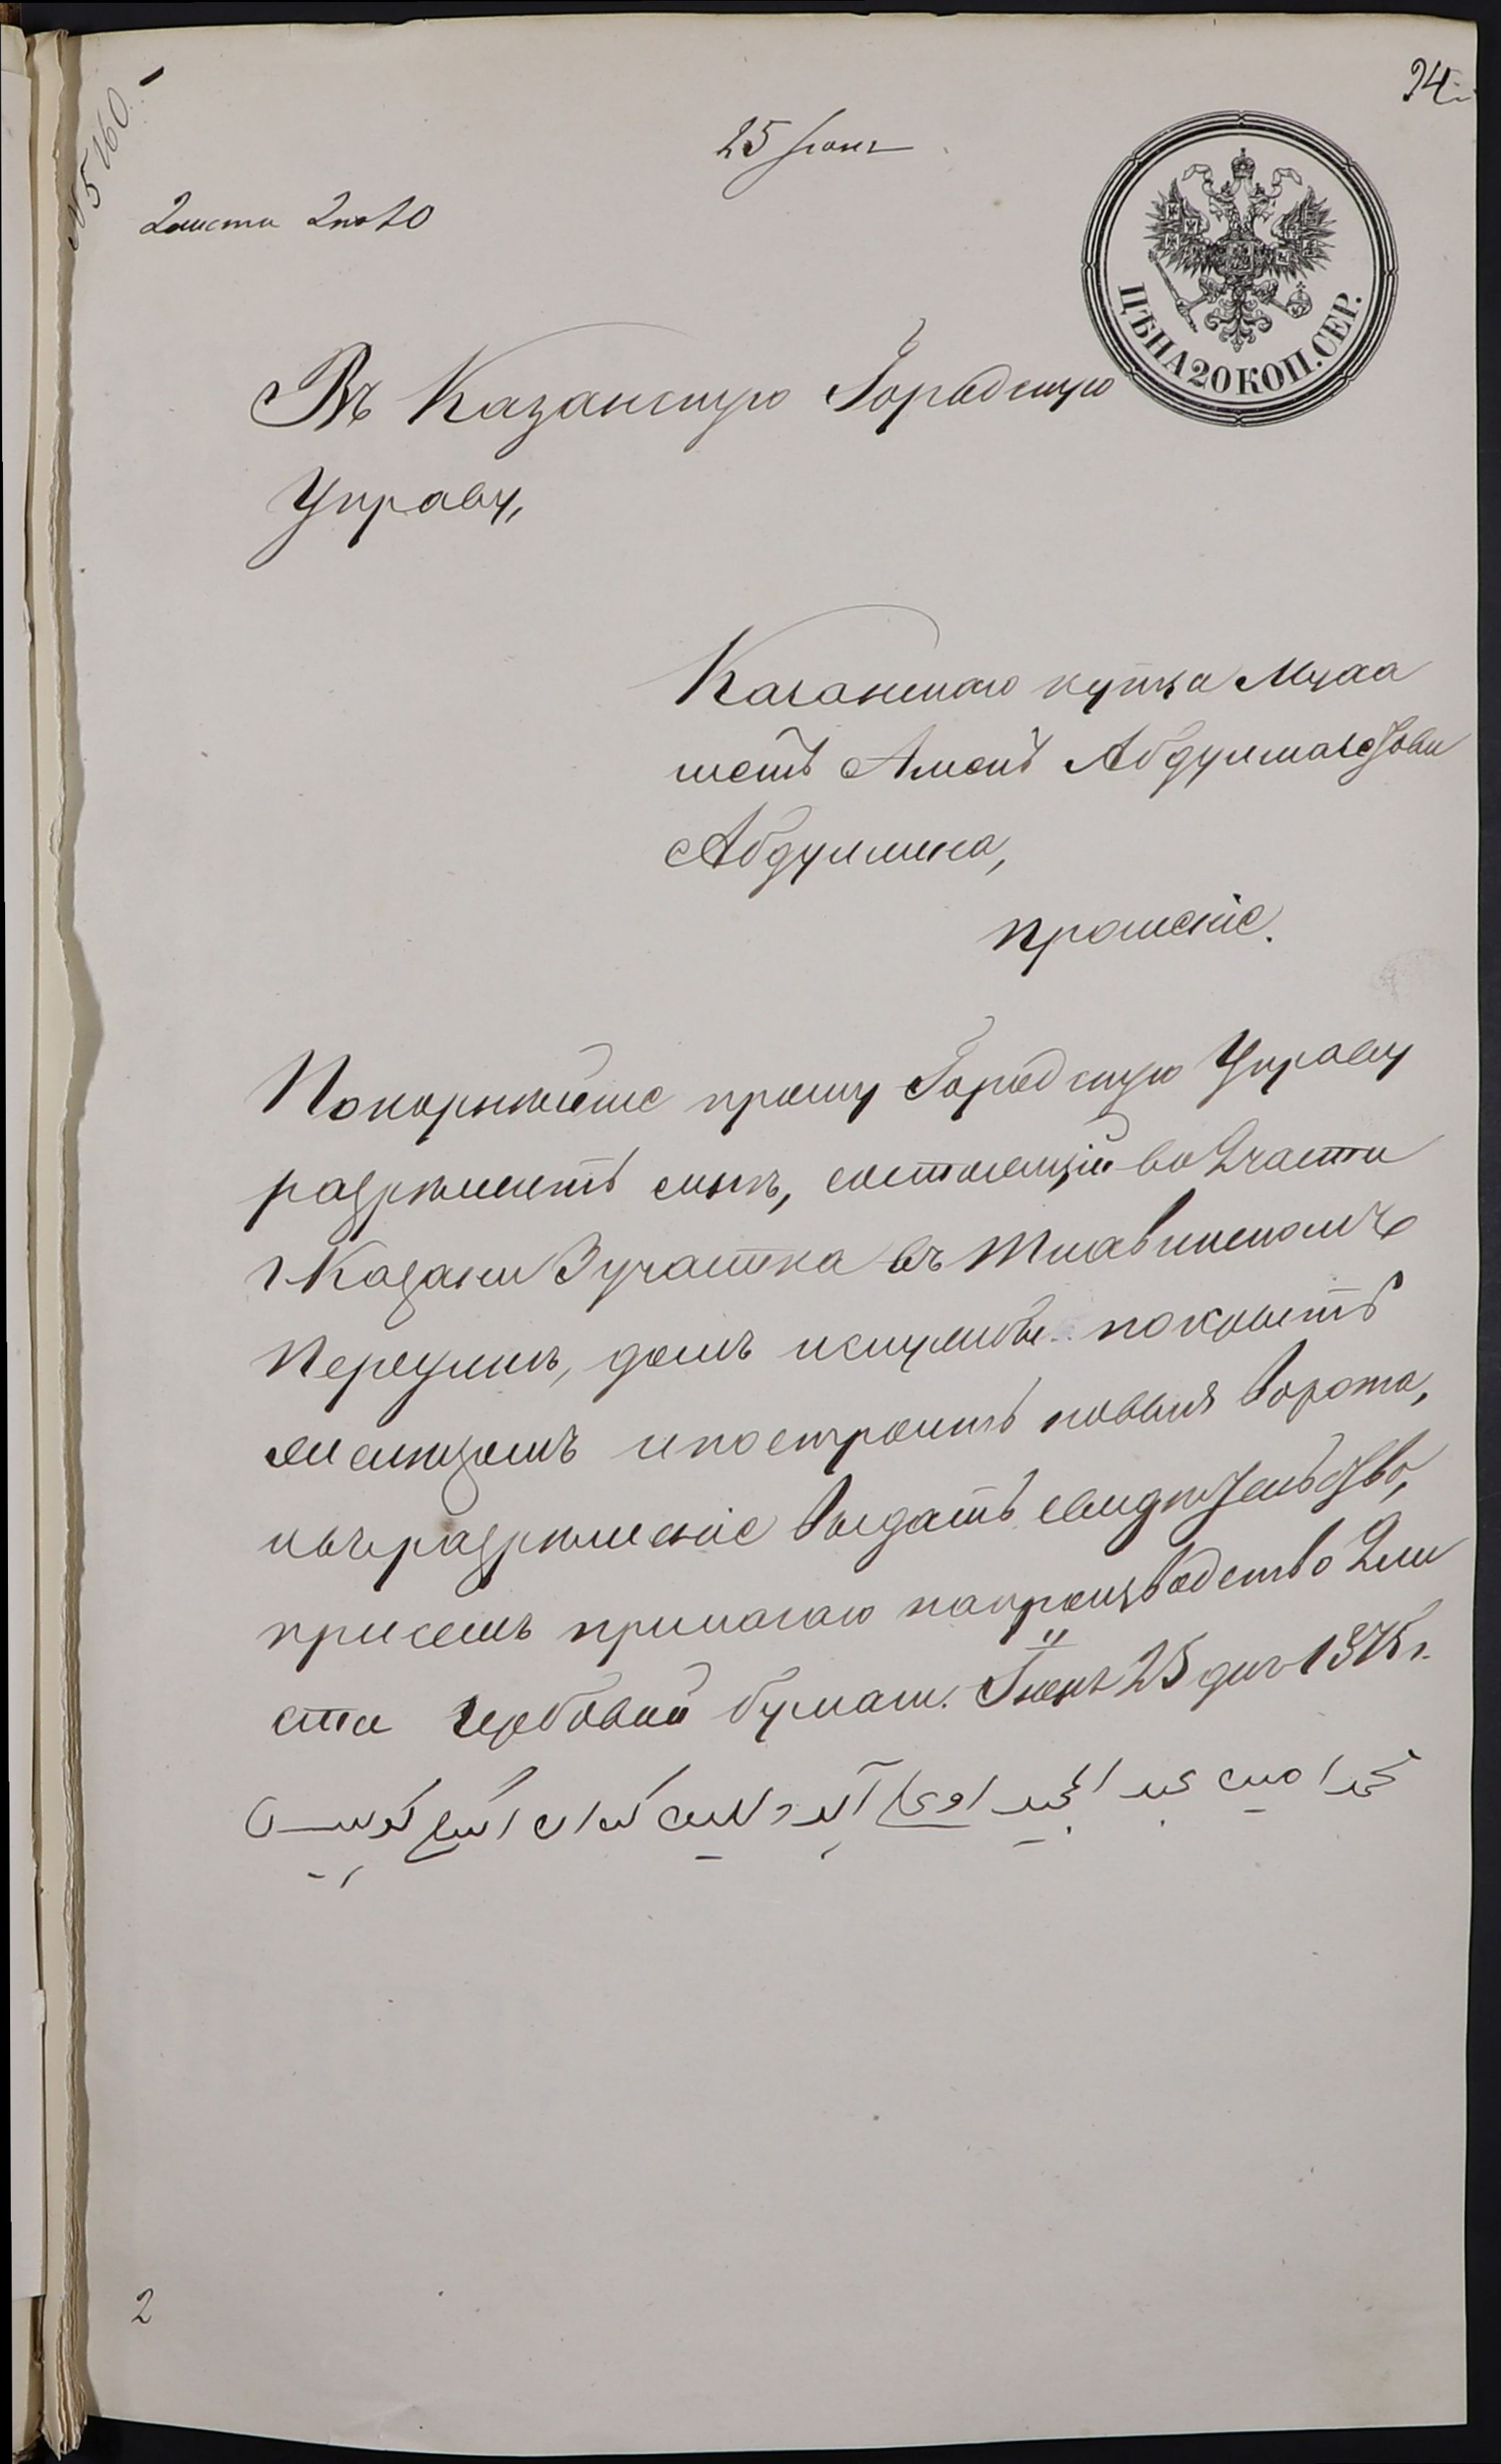 94
25 Іюня
№ 5160
2 листа 2 по 20
ЦѢНА 20 КОП. СЕР.
Въ Казанскую Городскую
Управу,
Казанскаго купца Муха
метъ Аменъ Абдулма
Абдуллина,
прошеніе.
Покорнѣйше прошу Городскую Управу
разрѣшить мнѣ, состоящій во 2 части
г. Казани 3 участка въ
переулкѣ, домъ покрыть
и построить новыя ворота,
разрѣшеніе выдать свидѣтельство,
при семъ прилагаю на производство 2 ли
ста гербовой бумаги. Іюня 25 дня 1875 г.
محمد امين عبد المجيد اوغلى
2